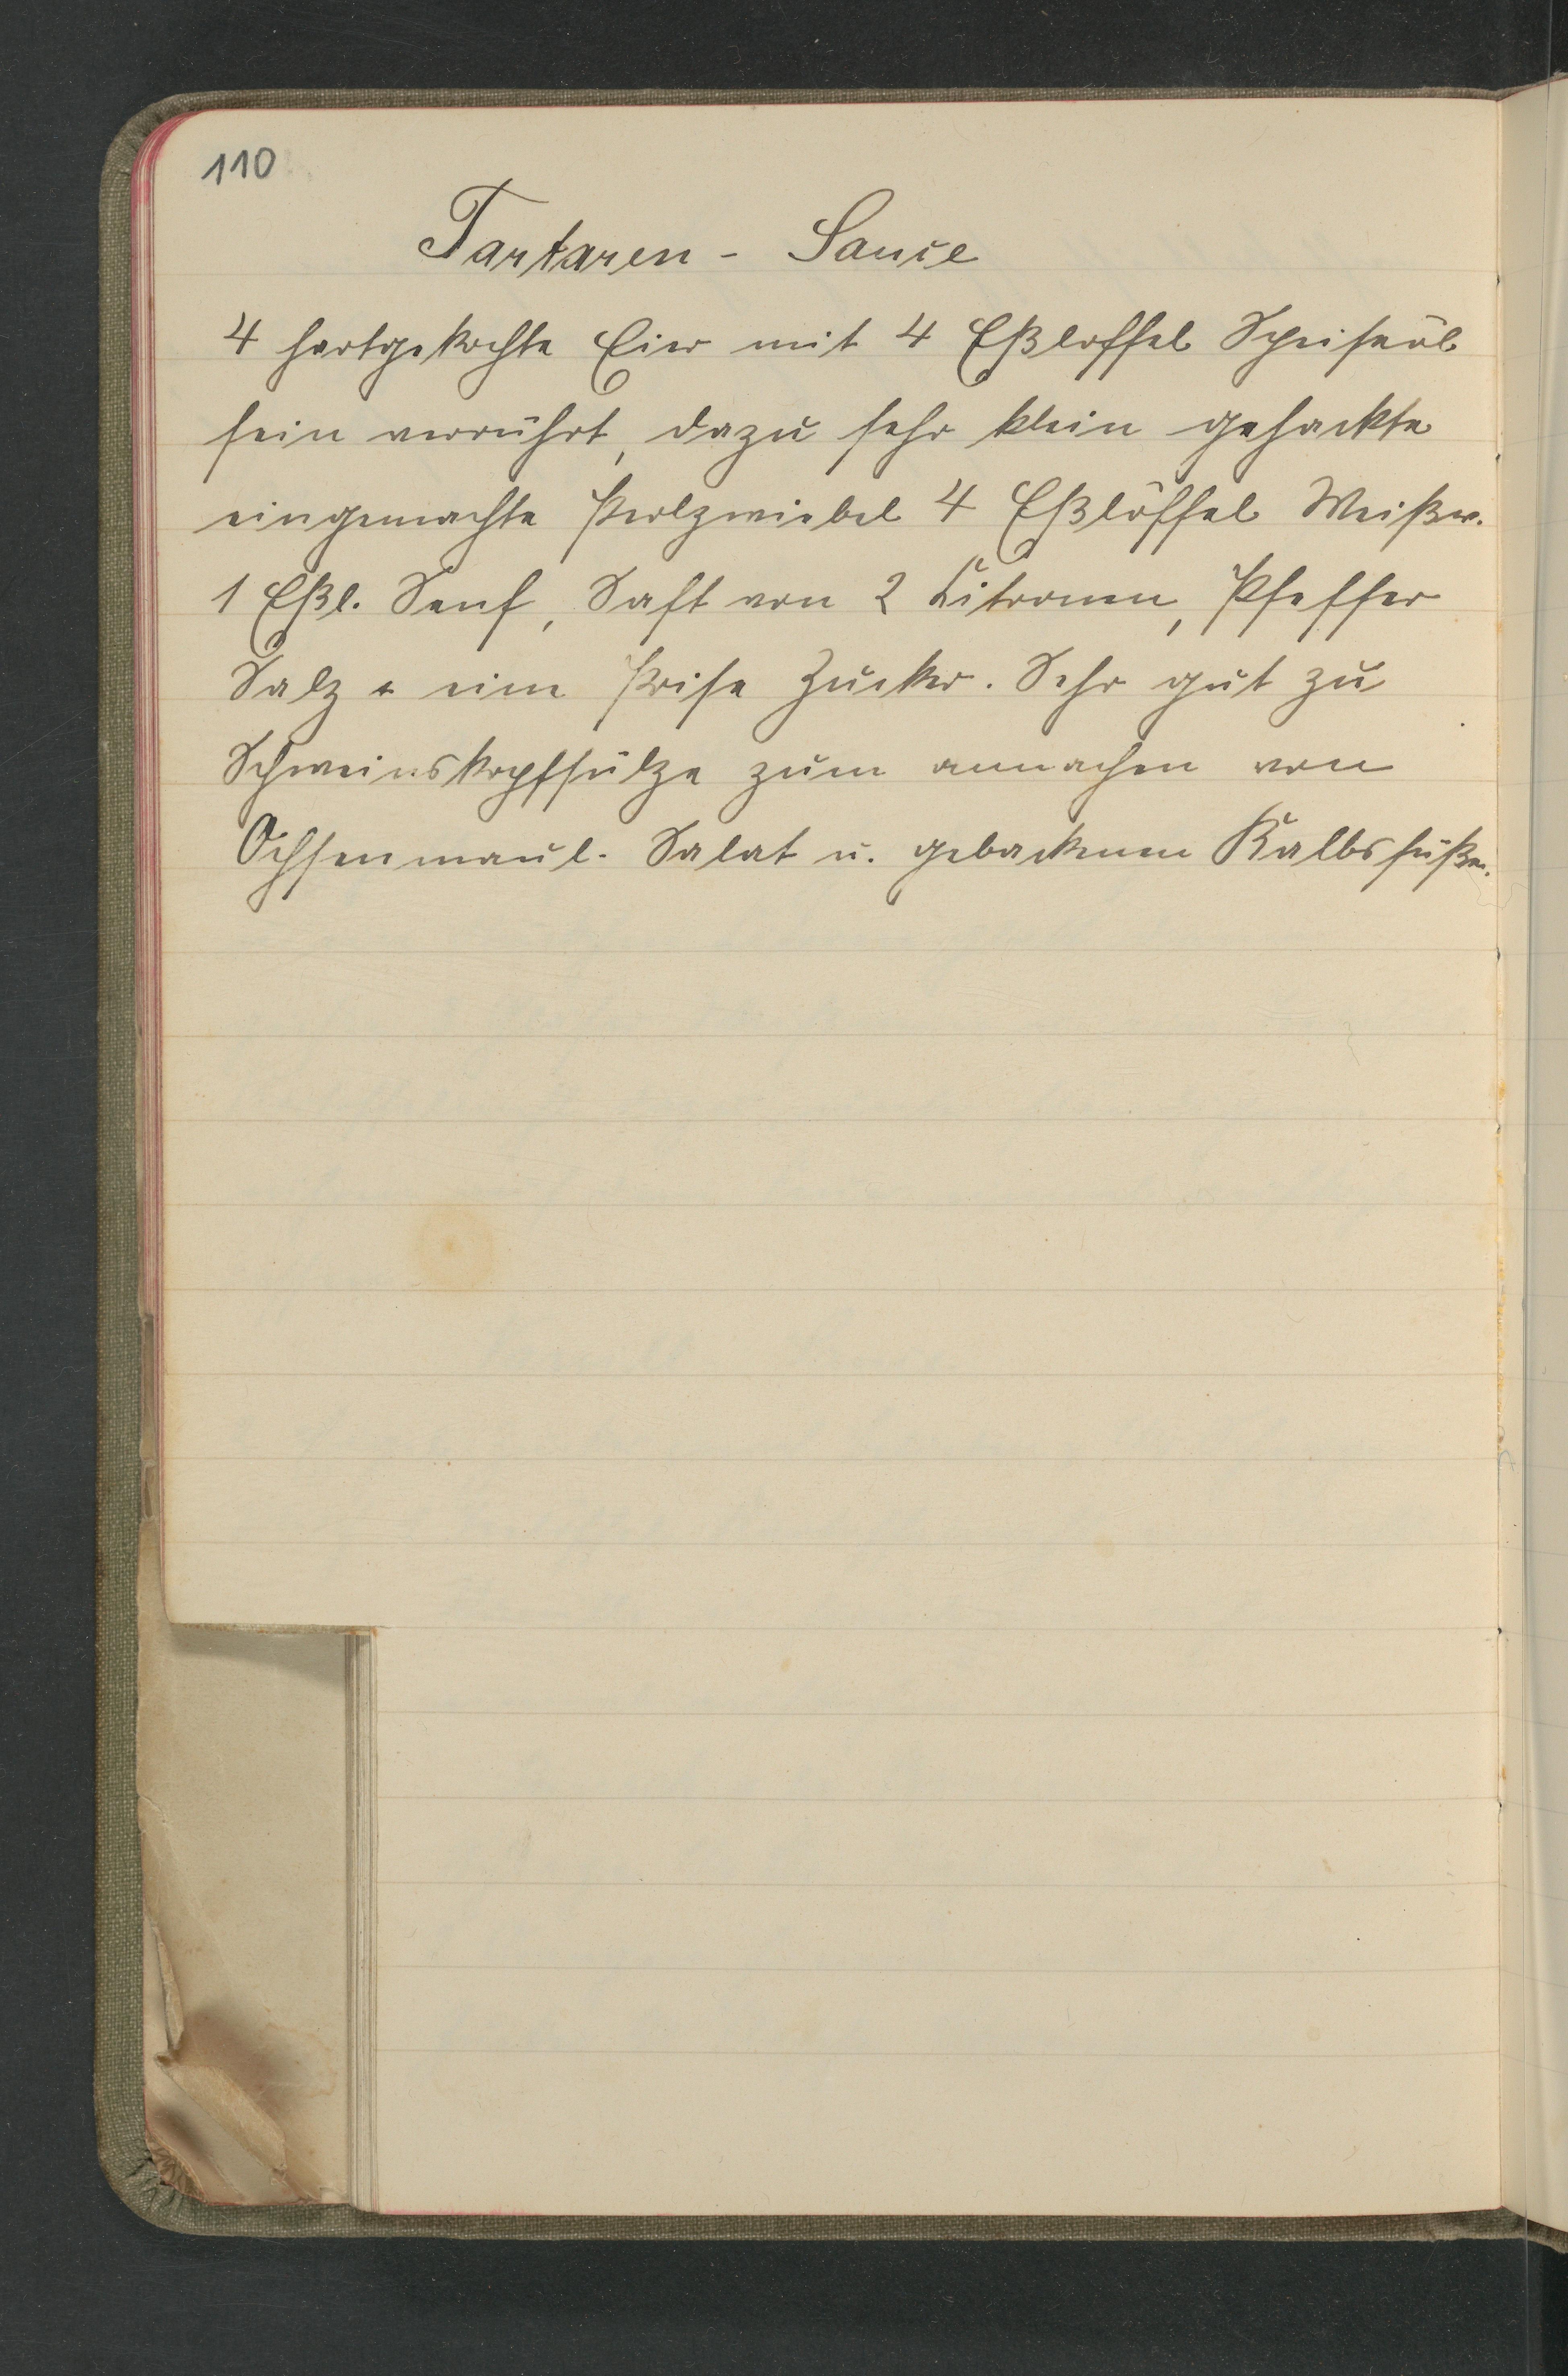 110
Tartaren - Sauce
4 hartgekochte Eier mit 4 Eßloffel Speiseöl
fein verrührt, dazu sehr klein gehackte
eingemachte Perlzwiebel 4 Eßlöffel Weißw.
1 Eßl. Senf, Saft von 2 Citronen, Pfeffer
Salz + eine Prise Zucker. Sehr gut zu
Schweinskopfsülze zum anmachen von
Ochsenmaul- Salat u. gebackenen Kalbsfüßen.